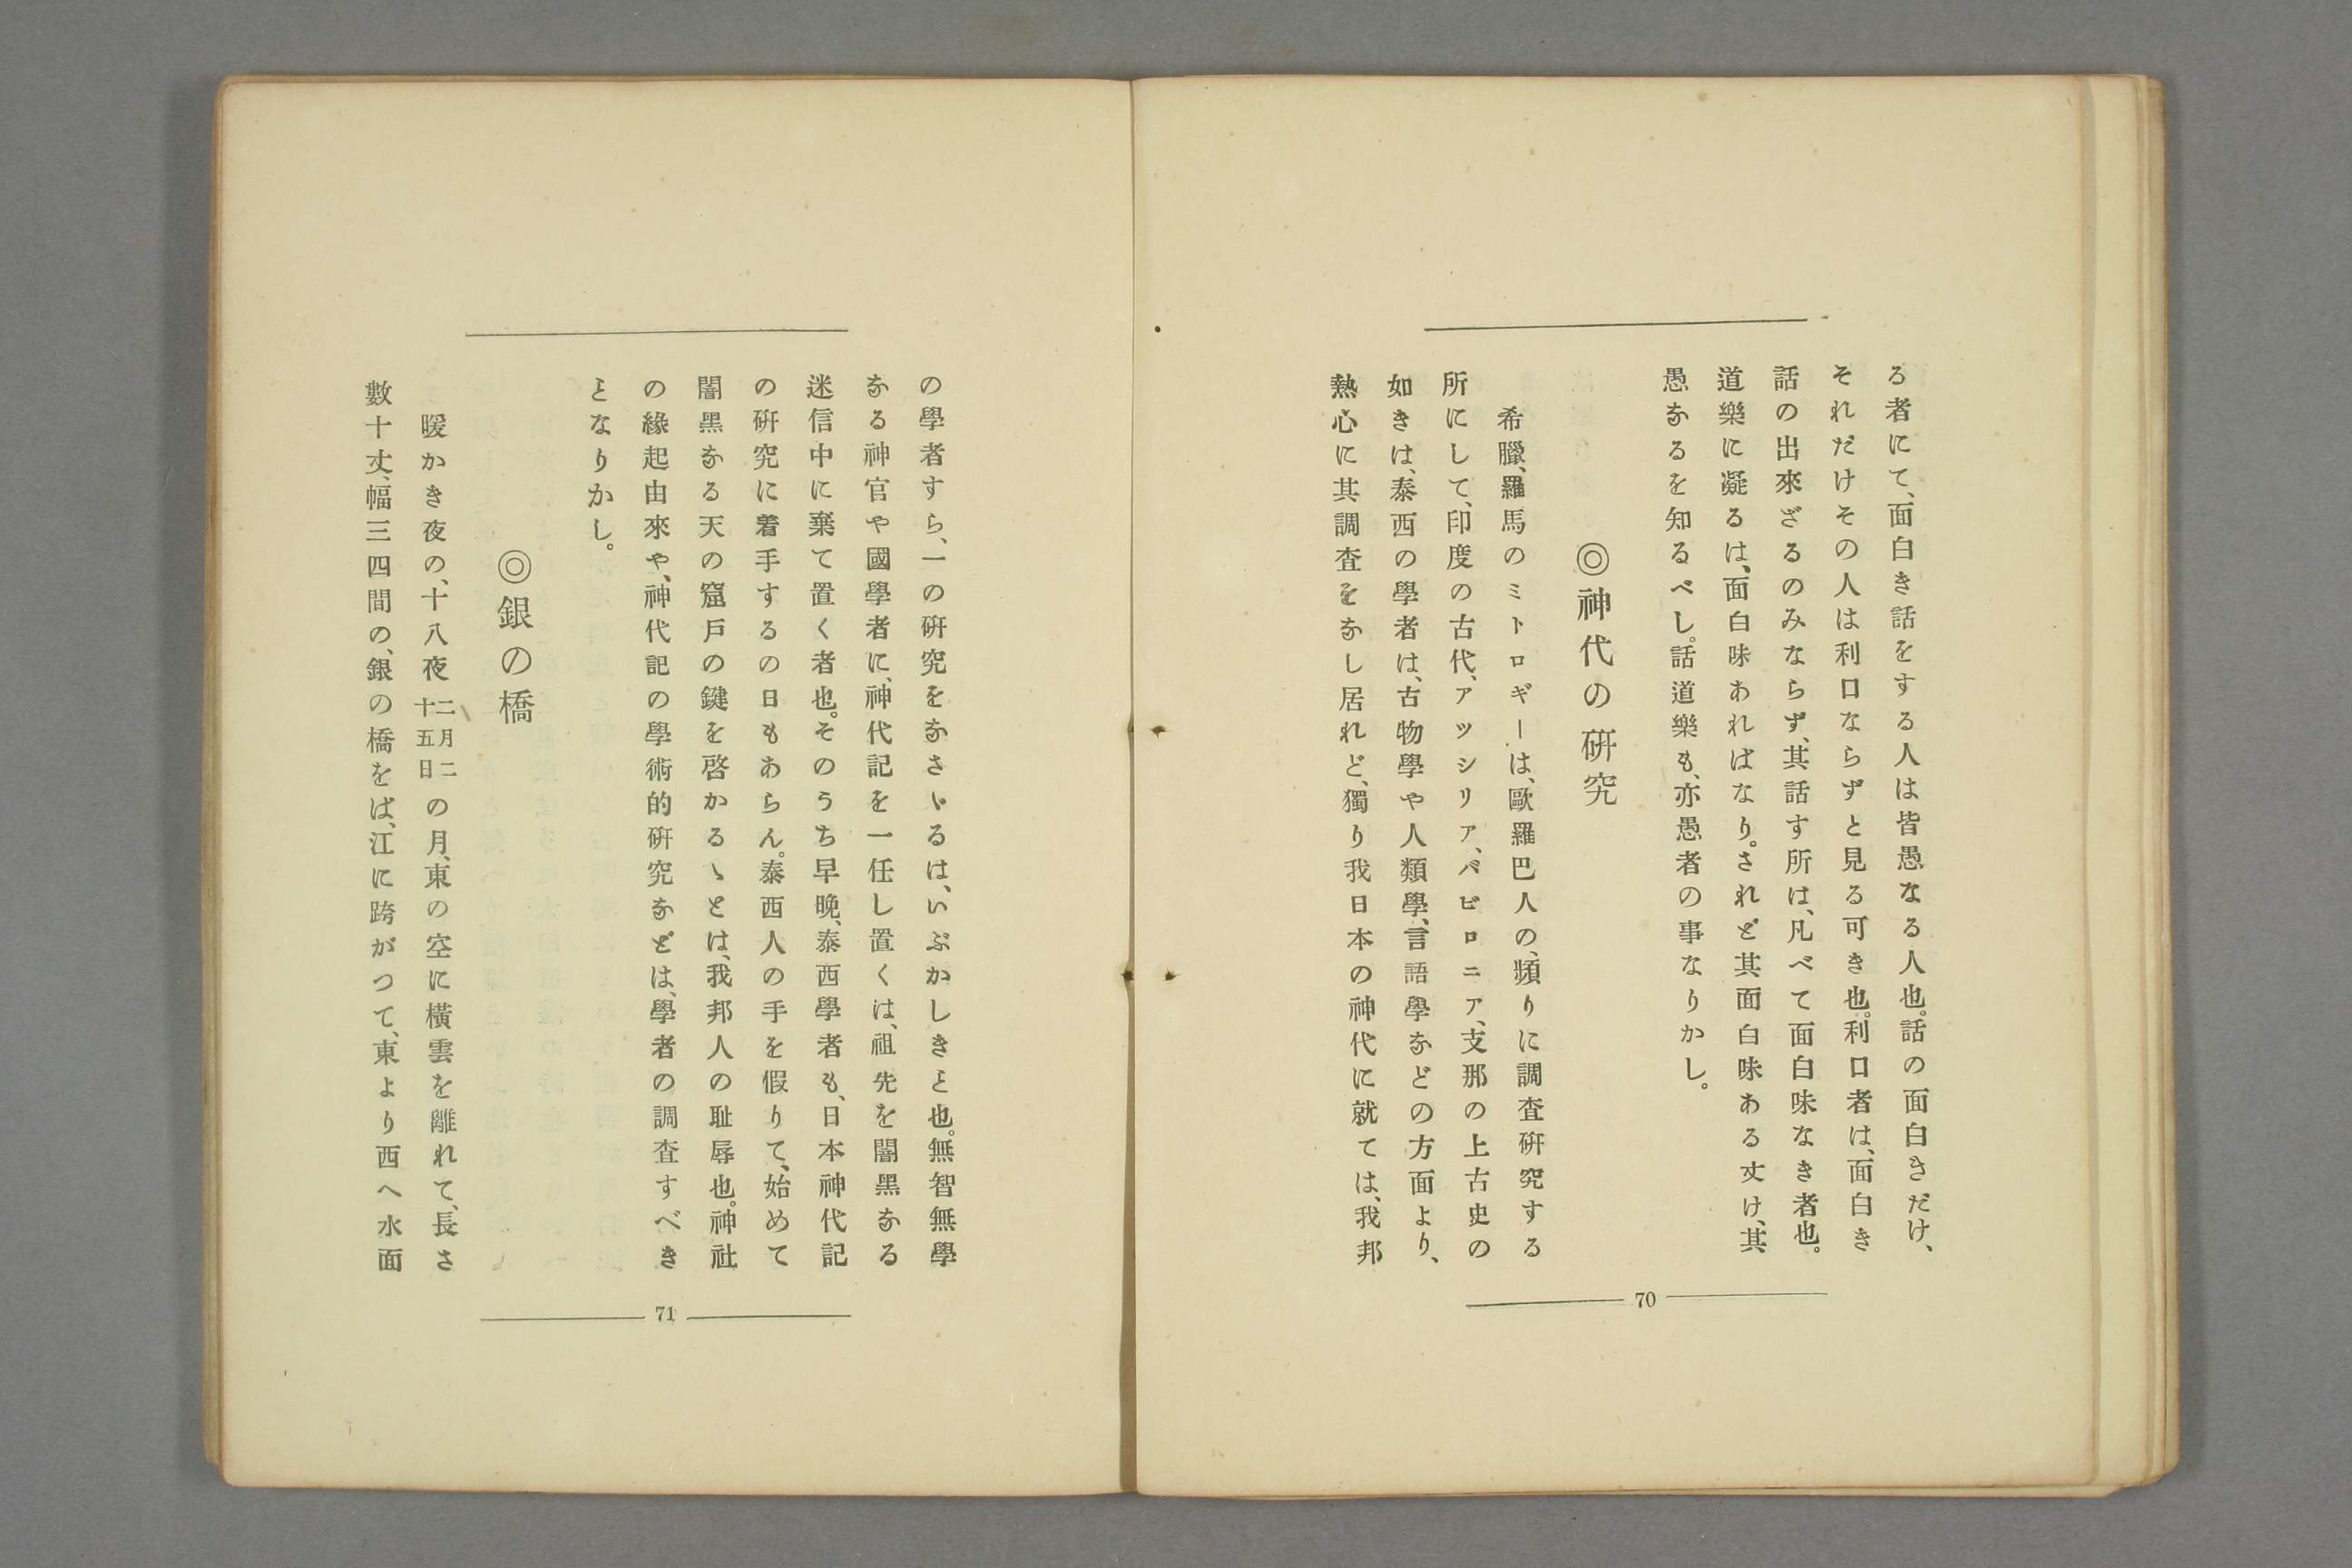 る者にて、面白き話をする人は皆愚なる人也。話の面白さだけ、
それだけその人は利口ならずと見る可き也。利口者は、面白き
話の出來ざるのみならず、其話す所は、凡べて面白味なき者也。
道樂に凝るは、面白味あればなり。されど其面白味ある丈け、其
愚なるを知るべし。話道樂も、亦愚者の事なりかし。
◎神代の研究
希臘、羅馬のミトロギーは、歐羅巴人の、頻りに調査研究する
所にして、印度の古代、アツシリア、バビロニア、支那の上古史の
如きは、泰西の學者は、古物學や人類學、言語學などの方面より、
熱心に其調査をなし居れど、獨り我日本の神代に就ては、我邦
70
の學者すら、一の研究をなさゞるは、いぶかしきこと也。無智無學
なる神官や國學者に、神代記を一任し置くは、祖先を闇黑なる
迷信中に棄て置く者也。そのうち早晩、泰西學者も、日本神代記
の研究に着手するの日もあらん。泰西人の手を假りて、始めて
闇黑なる天の窟戸の鍵を啓かるゝとは、我邦人の耻辱也。神社
の緣起由來や、神代記の學術的研究などは、學者の調査すべき
ことなりかし。
◎銀の橋
暖かき夜の、十八夜二月二十五日の月、東の空に橫雲を離れて、長さ
數十丈、幅三四間の、銀の橋をば、江に跨がつて、東より西へ水面
71